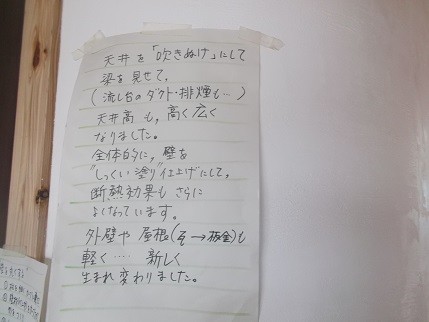 天井を「吹きぬけ」にして
梁を見せて、
(流し台のダクト・排煙も…)
天井高も,高く広く
なりました。
全体的に,壁を
"しっくい塗り"仕上げにして,
断熱効果もさらに
よくなっています。
外壁や屋根(瓦→板金)も
軽く‥‥新しく
生まれ変わりました。